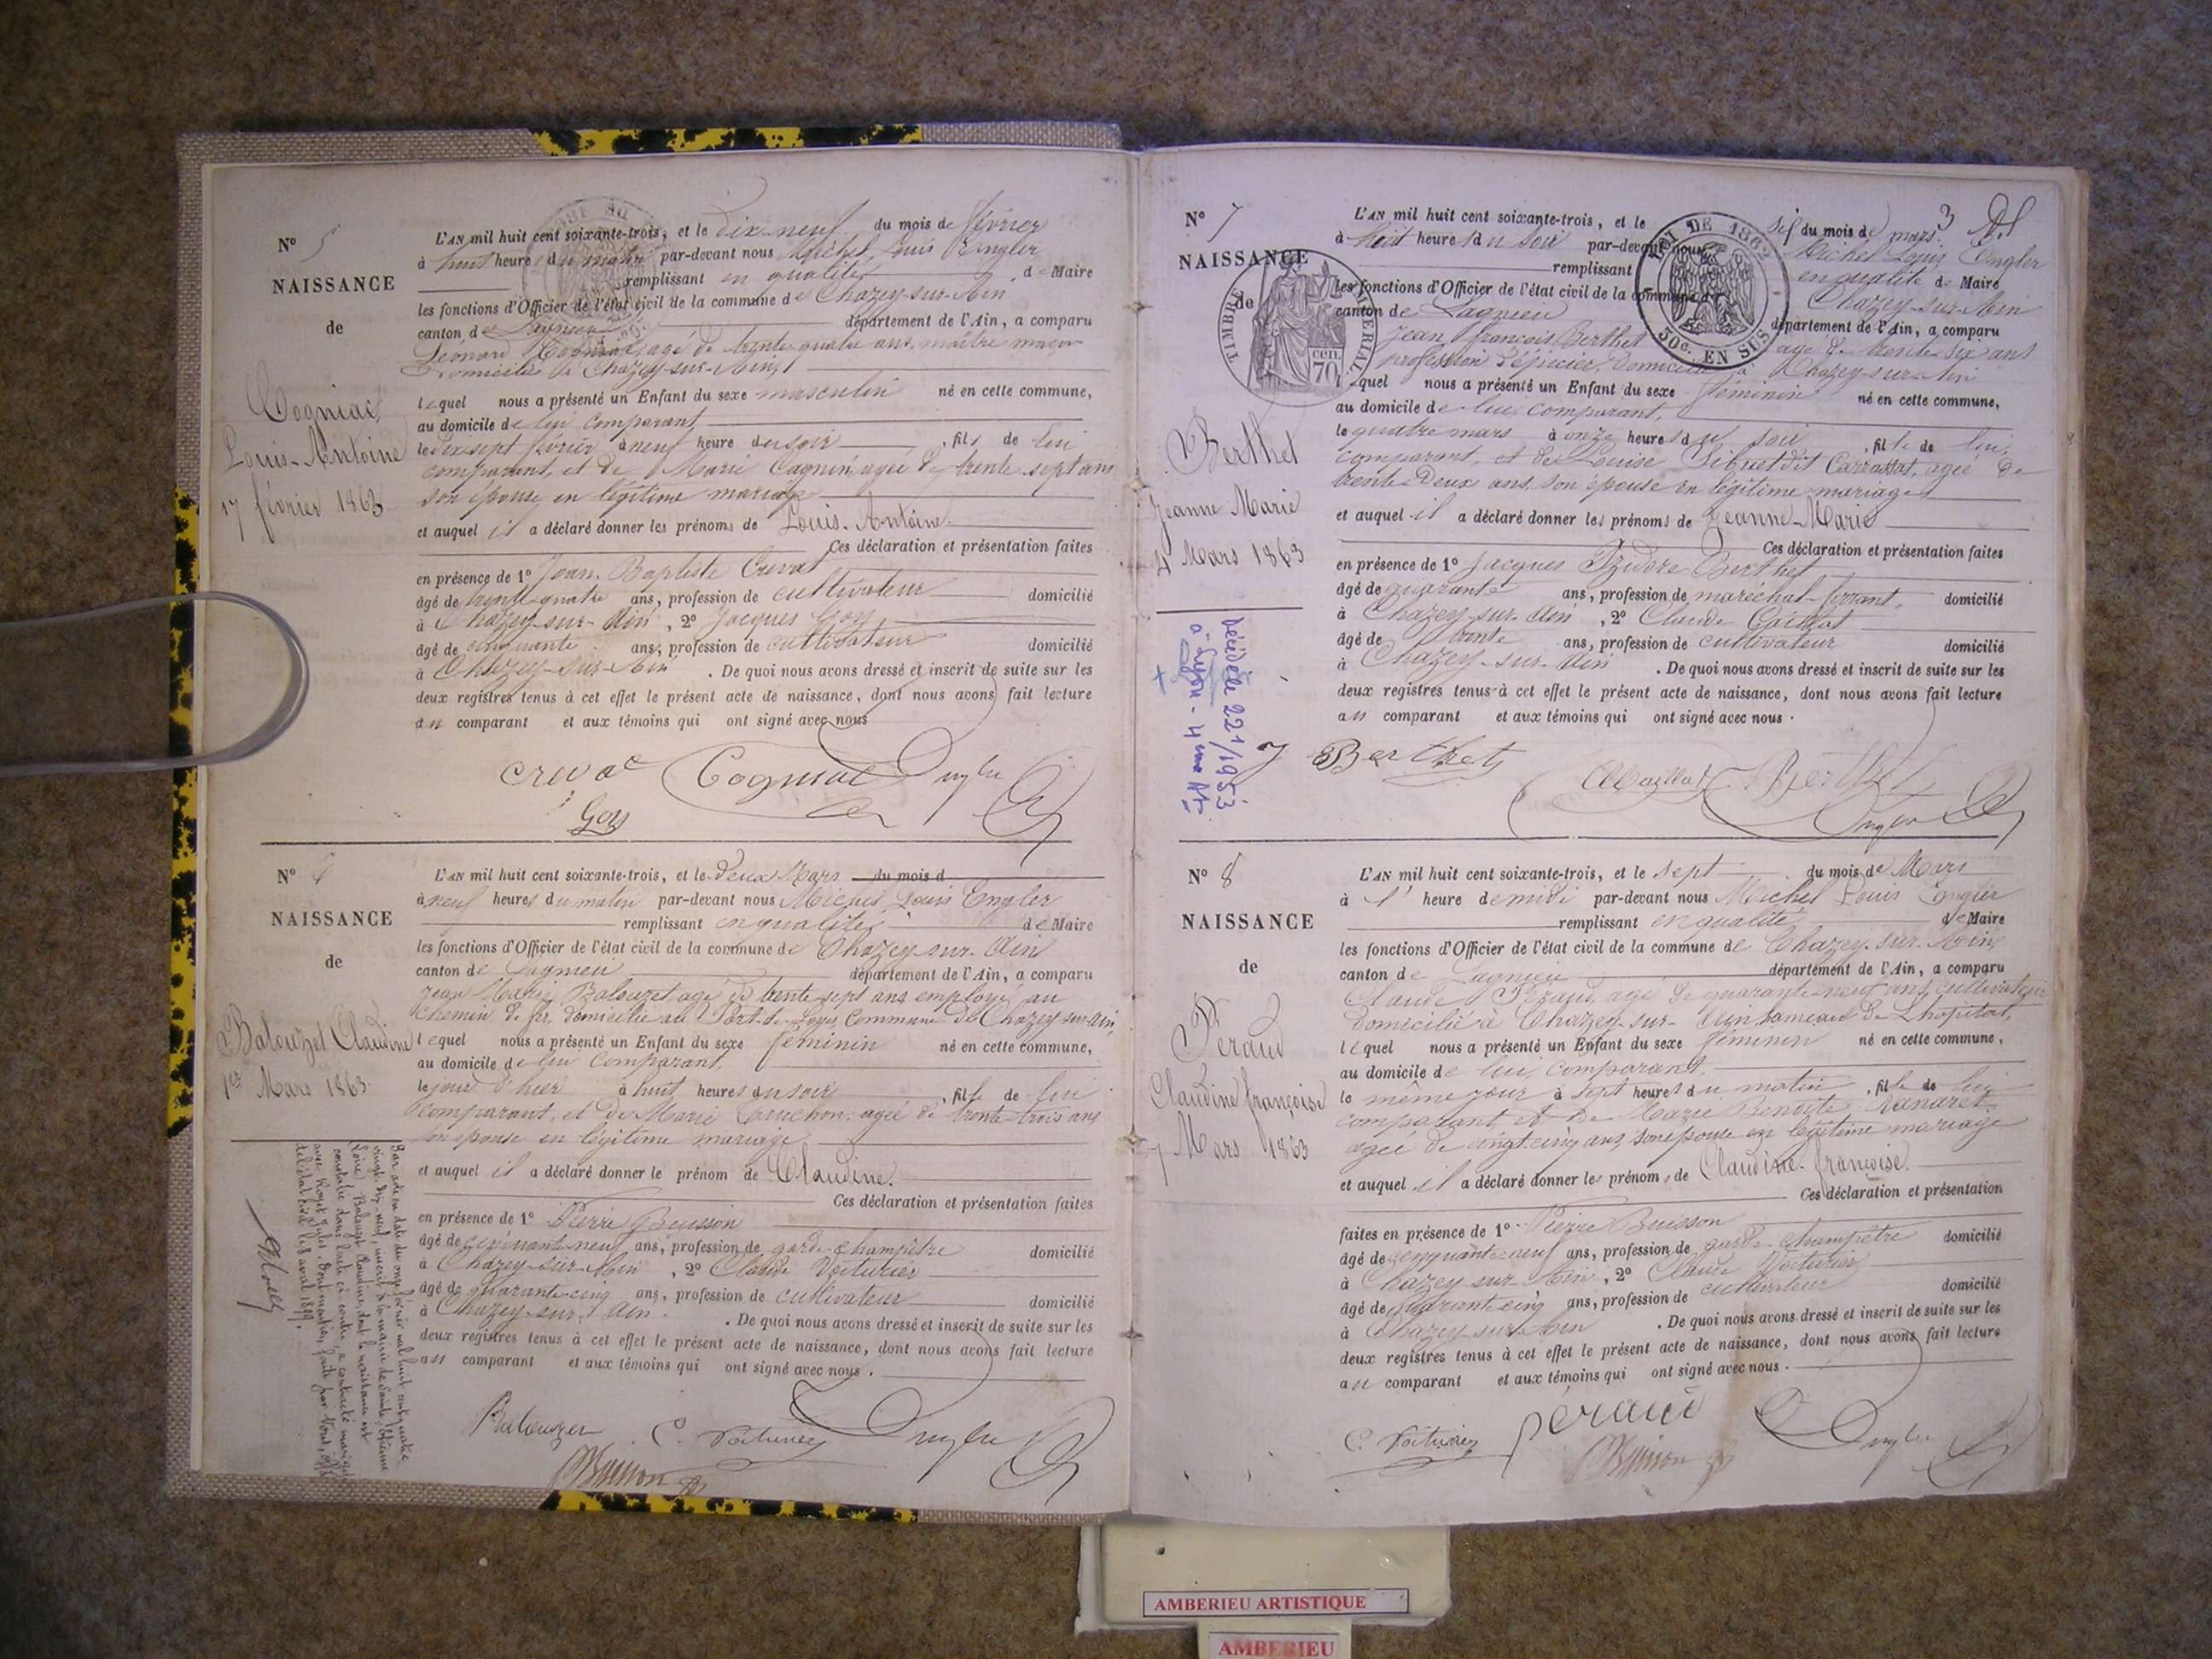 N° 5
NAISSANCE
de
Cogniac
Louis-Antoine
17 février 1863
L'AN mil huit cent soixante-trois, et le dix-neuf du mois de février
à huit heures du matin par-devant nous Michel Louis Engler
remplissant en qualité de Maire
les fonctions d'Officier de l'état civil de la commune de Chazey-sur-Ain
canton de Lagnieu département de l'Ain, a comparu
Léonard Cogniac, agé de trente quatre ans, maître maçon
Domicilié à Chazey-sur-Ain,
lequel nous a présenté un Enfant du sexe masculin né en cette commune,
au domicile de lui comparant,
le dix sept février à neuf heure du soir, fils de lui
comparant, et de Marie Cagnin, agée de trente sept ans
son épouse en légitime mariage
et auquel il a déclaré donner les prénoms de Louis-Antoine.
Ces déclaration et présentation faites
en présence de 1° Jean-Baptiste Crevat
âgé de trente-quatre ans, profession de cultivateur domicilié
à Chazey-sur-Ain, 2° Jacques Goy
âgé de cinquante ans, profession de cultivateur domicilié
à Chazey-sur-Ain. De quoi nous avons dressé et inscrit de suite sur les
deux registres tenus à cet effet le présent acte de naissance, dont nous avons fait lecture
au comparant et aux témoins qui ont signé avec nous
Crevat Cogniac Engler
Goy
N° 6
NAISSANCE
de
Balouzet Claudine
1er Mars 1863
L'AN mil huit cent soixante-trois, et le deux Mars du mois d
à neuf heures du matin par-devant nous Michel Louis Engler
remplissant en qualité de Maire
les fonctions d'Officier de l'état civil de la commune de Chazey-sur-Ain
canton de Lagnieu département de l'Ain, a comparu
Jean Marie Balouzet agé de trente sept ans employé au
Chemin de fer, domicilié au Port-de-Loyes, Commune de Chazey-sur-Ain,
lequel nous a présenté un Enfant du sexe féminin né en cette commune,
au domicile de lui comparant,
le jour d'hier à huit heures du soir, fille de lui
comparant, et de Marie agée de trente-trois ans
son épouse en légitime mariage
et auquel il a déclaré donner le prénom de Claudine.
Ces déclaration et présentation faites
en présence de 1° Pierre Buisson
âgé de cinquante-neuf ans, profession de garde-champêtre domicilié
à Chazey-sur-Ain, 2° Claude Voiturier
âgé de quarante-cinq ans, profession de cultivateur domicilié
à Chazey-sur-Ain. De quoi nous avons dressé et inscrit de suite sur les
deux registres tenus à cet effet le présent acte de naissance, dont nous avons fait lecture
au comparant et aux témoins qui ont signé avec nous.
Balouzet C. Voiturier Engler
Buisson
Par acte en date du onze février mil huit cent quatre
vingt-dix-neuf, inscrit à la mairie de Saint-Etienne
Loire, Balouzet Claudine, dont la naissance est
constatée dans l'acte ci-contre, a contracté mariage
avec Royet Jules. Dont mention faite par Nous,
de l'état civil le 8 avril 1899.
N° 7
NAISSANCE
de
Berthet
Jeanne Marie
4 Mars 1863
Décédée le 22/1/1953
à Lyon - 4ème Ar
3
TIMBRE IMPERIAL
70 cen.
LOI DE 1862
50c. EN SUS
L'AN mil huit cent soixante-trois, et le six du mois de mars
à huit heure du soir par-devant nous Michel Louis Engler
remplissant en qualité de Maire
les fonctions d'Officier de l'état civil de la commune de Chazey-sur-Ain
canton de Lagnieu département de l'Ain, a comparu
Jean François Berthet agé de trente six ans
profession d'épicier, Domicilié à Chazey-sur-Ain
lequel nous a présenté un Enfant du sexe féminin né en cette commune,
au domicile de lui comparant,
le quatre mars à onze heures du soir, fille de lui,
comparant, et de Louise Sibuet dit Carrassat, agée de
trente-Deux ans, son épouse en légitime mariage
et auquel il a déclaré donner les prénoms de Jeanne-Marie
Ces déclaration et présentation faites
en présence de 1° Jacques Izidore Berthet
âgé de quarante ans, profession de maréchal-ferrant, domicilié
à Chazey-sur-Ain, 2° Claude
âgé de trente ans, profession de cultivateur domicilié
à Chazey-sur-Ain. De quoi nous avons dressé et inscrit de suite sur les
deux registres tenus à cet effet le présent acte de naissance, dont nous avons fait lecture
au comparant et aux témoins qui ont signé avec nous.
J Berthet Berthet
Engler
N° 8
NAISSANCE
de
Péraud
Claudine françoise
7 Mars 1863
L'AN mil huit cent soixante-trois, et le sept du mois de Mars
à l' heure de midi par-devant nous Michel Louis Engler
remplissant en qualité de Maire
les fonctions d'Officier de l'état civil de la commune de Chazey-sur-Ain
canton de Lagnieu département de l'Ain, a comparu
Claude Péraud, agé de quarante-neuf ans, cultivateur
Domicilié à Chazey-sur-Ain hameau de Lhopital,
lequel nous a présenté un Enfant du sexe féminin né en cette commune,
au domicile de lui comparant
le même jour à sept heures du matin, fille de lui
comparant et de Marie Benoite Ranaret,
agée de vingt cinq ans, son épouse en légitime mariage
et auquel il a déclaré donner les prénoms de Claudine-françoise.
Ces déclaration et présentation
faites en présence de 1° Pierre Buisson
âgé de cinquante-neuf ans, profession de garde-champêtre domicilié
à Chazey-sur-Ain, 2° Claude Voiturier
âgé de quarante cinq ans, profession de cultivateur domicilié
à Chazey-sur-Ain. De quoi nous avons dressé et inscrit de suite sur les
deux registres tenus à cet effet le présent acte de naissance, dont nous avons fait lecture
au comparant et aux témoins qui ont signé avec nous.
C. Voiturier Péraud Engler
Buisson
AMBERIEU ARTISTIQUE
AMBERIEU